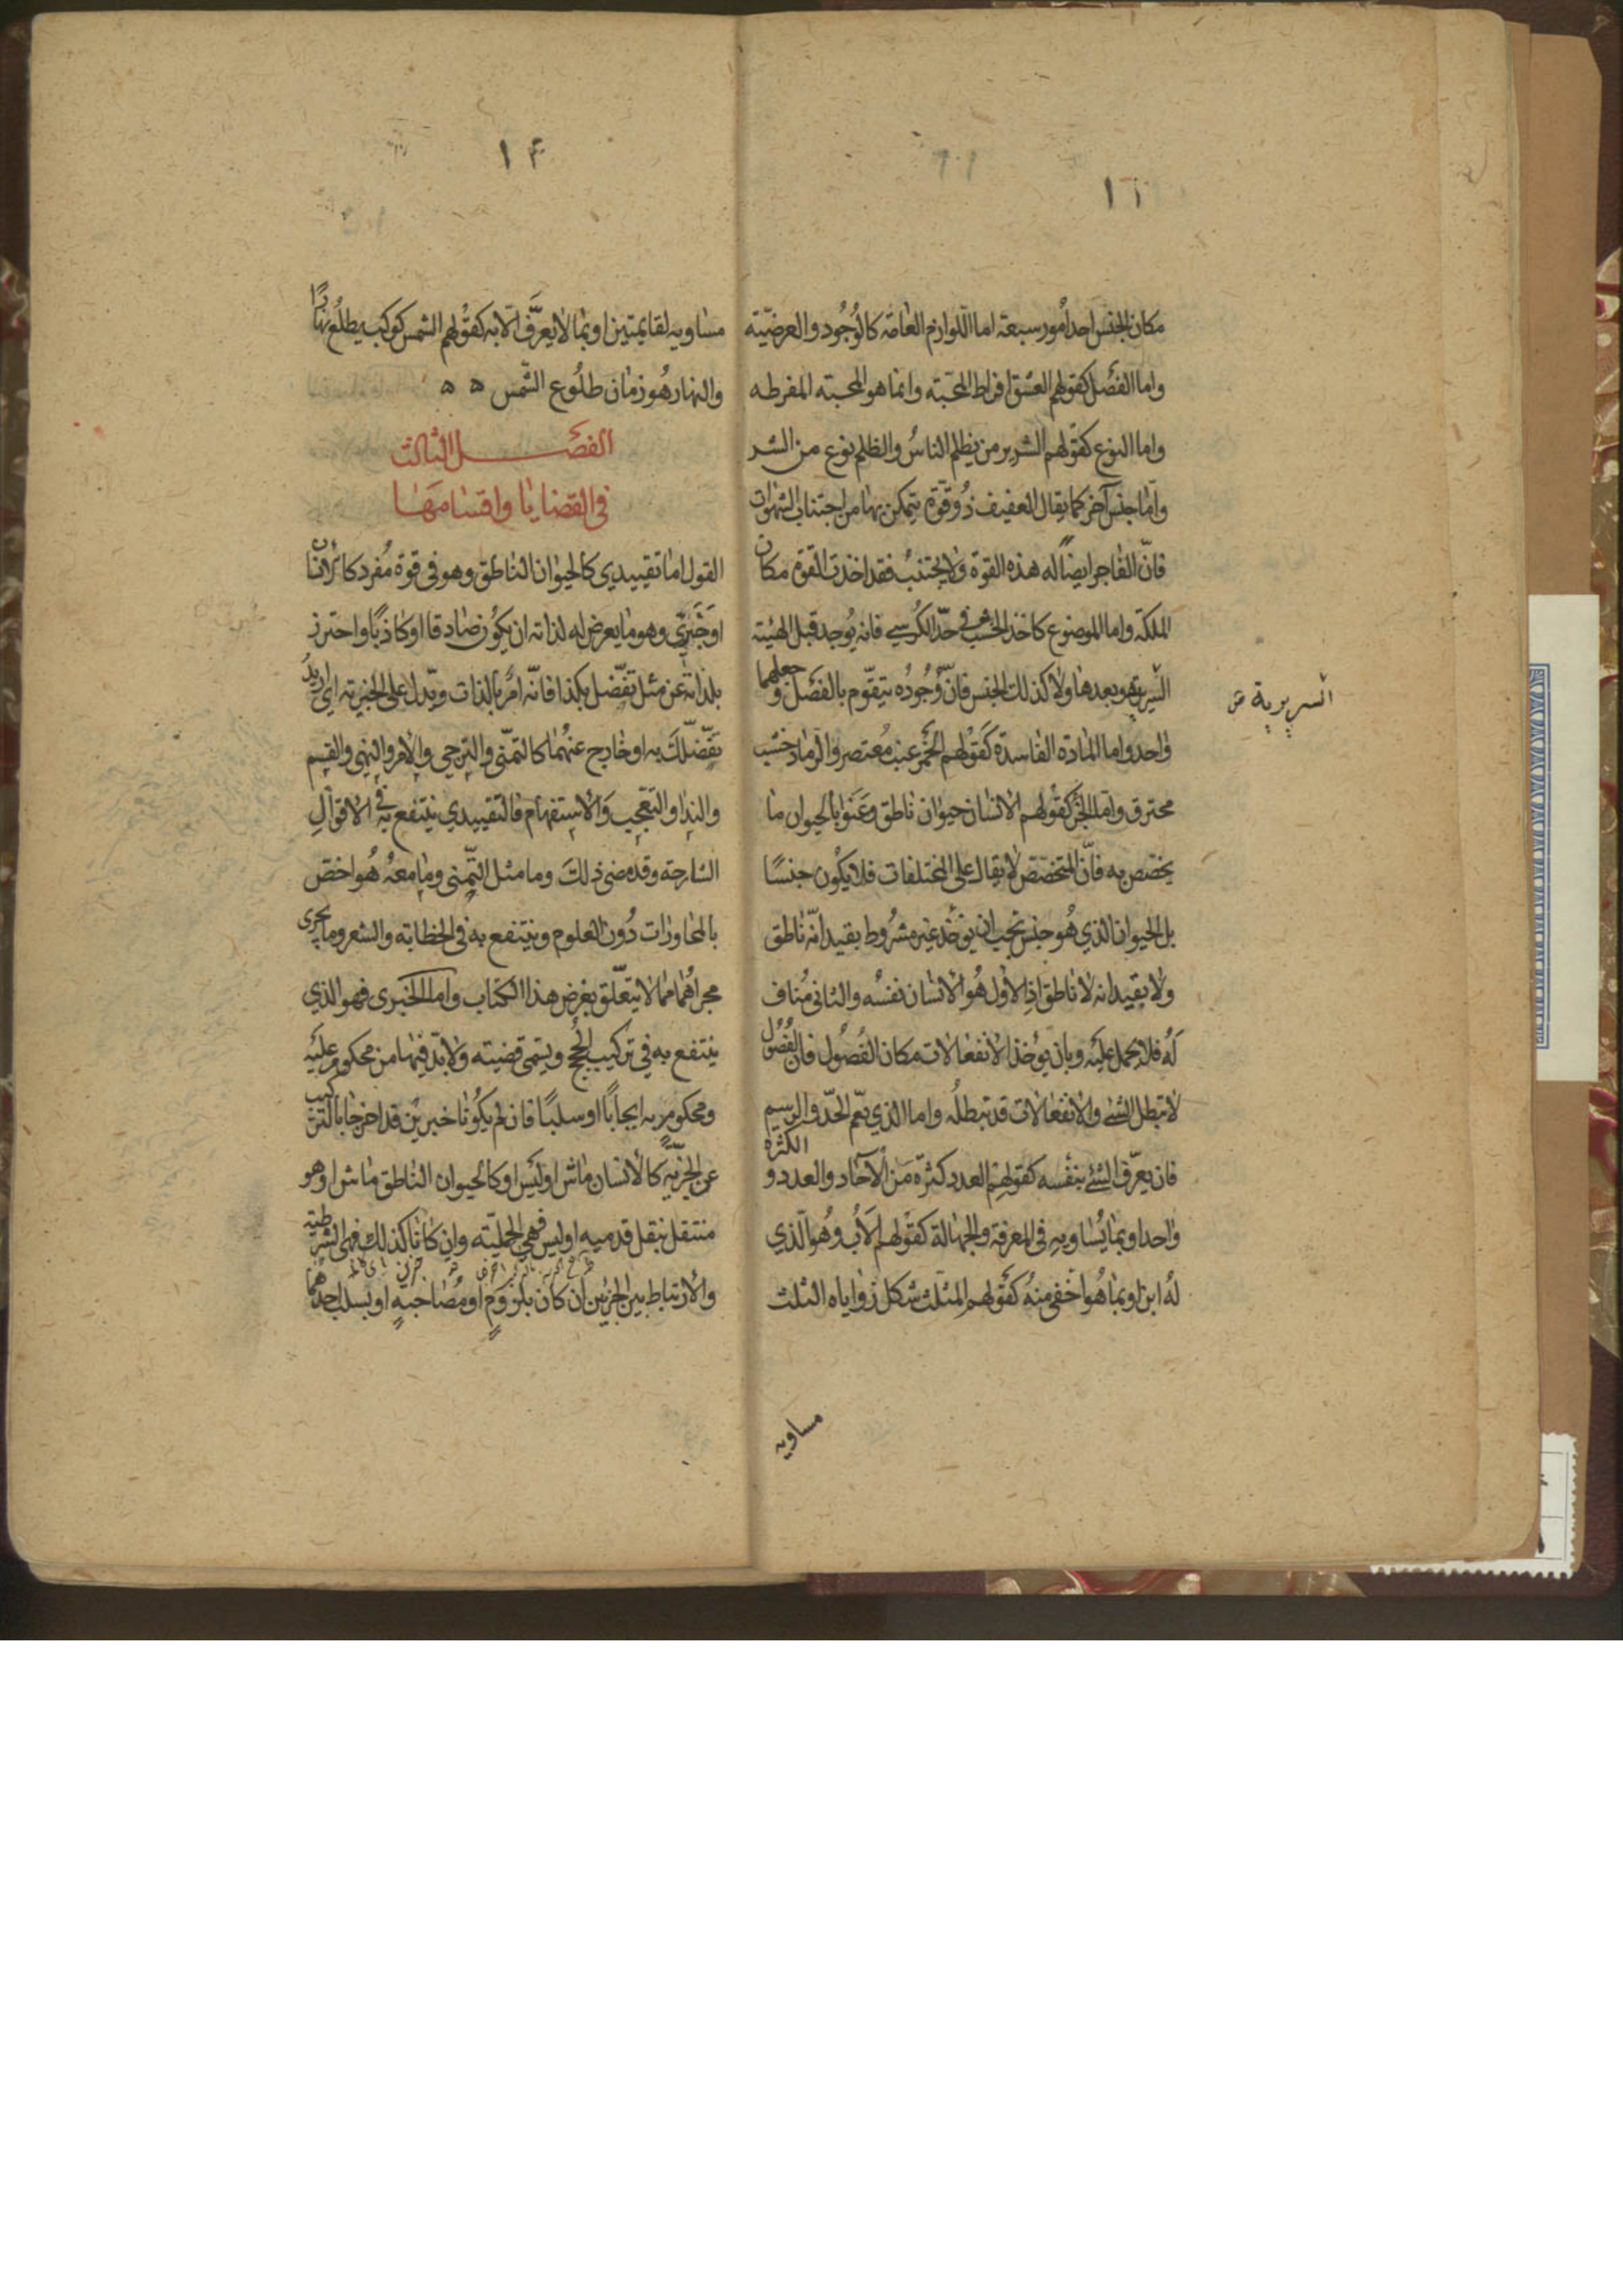 ١٢
مكان الجنس احد امور سبعة اما اللوازم العامّه كالوُجُود والعرضيّته
واما الفصل كقولهم العشق افراط المحبّته وانما هو المحبته المفرطه
واما النوع كقولهم الشرير من يظلم الناسُ والظلم نوع من الشر
وامّا جنس آخر كما يقال العفيف ذُو قوّة يتمكن بها من اجتناب الشهوات
فانّ الفاجر ايضًا له هذه القوة ولا يجتنبُ فقد اخذت القوّة مكان
الملكة واما الموضوع كاخذ الخشب في حدّ الكُرسي فانه يُوجد قبل الهيئته
السّريريّة وبعدها ولا كذلك الجنس فانّ وُجُودُه يتقوّم بالفصل وجعلهما
السريرية
واحد واما المادّة الفاسدة كقولهم الخمر عنب مُعتصر والرماد خشب
محترق واما الجزء كقولهم الانسان حيوان ناطق وعَنَوا بالحيوان ما
يختصّ به فانّ المتخصّص لا يقال على المختلفات فلا يكُون جنسًا
بل الحيوان الذي هُو جنس يجب ان يؤخذ غير مشرُوط بقيد انّه ناطق
ولا بقيد انه لا ناطق اذ الاول هُو الانسان نفسُه والثانى مُناف
لَهُ فلا يحمل عليَه وبان يؤخذ الانفعالات مكان الفُصُول فان الفُصُول
لا تبطل الشئ والانفعالات قد تبطلُه واما الذي يعّم الحدّ والرسم
فان يعرّف الشئ بنفسه كقولهم العدد كثرّة مَن الآحَاد والعدد و الكثرة
واحد او بما يُساويه في المعرفة والجهالة كقولهم الاَب وهُو الّذي
لهُ ابن او بما هُو اخفى منهُ كقولهم المثلث شكل زواياه الثلث
مساويه
١٤
مساويه لقايمتين او بما لا يعرَّف الّا به كقولهم الشمس كوكب يطلعُ نهارًا
والنهار هُو زمان طلُوع الشّمس ه ه
الفصل الثالث
في القضايا واقسامَهَا
القول اما تقييدي كالحيوان الناطق وهو في قوة مُفرد كالانسان
او خَبَرِيّ وهو ما يعرض له لذاته ان يكُون صادقا او كاذبًا واحترز
بلذاته عن مثل تفضّل بكذا فانّه امرٌ بالذات ويدل على الخبرته اي اريدُ
تفضّلَك به او خارج عنهُما كالتمّني والترجي والامر والنهي والقسم
والندا والتعجّب وَالاستفهام فالتقييدي ينتفع به في الاقوال
الشارحة وقد مضى ذلك وما مثل التّمنى وما معهُ هُو اخصّ
بالمحاورات دُون العلوم وينتفع به في الخطابة والشعر وما يجرى
مجراهُما مما لا يتعلّق بغرض هذا الكتاب واما الخبرى فهو الذي
ينتفع به في تركيب الحُجج ويسمى قضيته ولا بدّ فيها من محكوم عليَه
ومحكوم به ايجابًا او سلبًا فان لم يكُونا خبرين قد اخرجا بالتركيب
عن الجزئيّه كالانسان مَاش او ليَس او كالحيوان الناطق ماش او هو
منتقل بنقل قدميه او ليس فهي الحمليّته وان كانا كذلك فهى الشرطيّه
والارتباط بين الجزئين ان كان بلزُومٍ او مُصَاحبةٍ او بسلب احدهُما